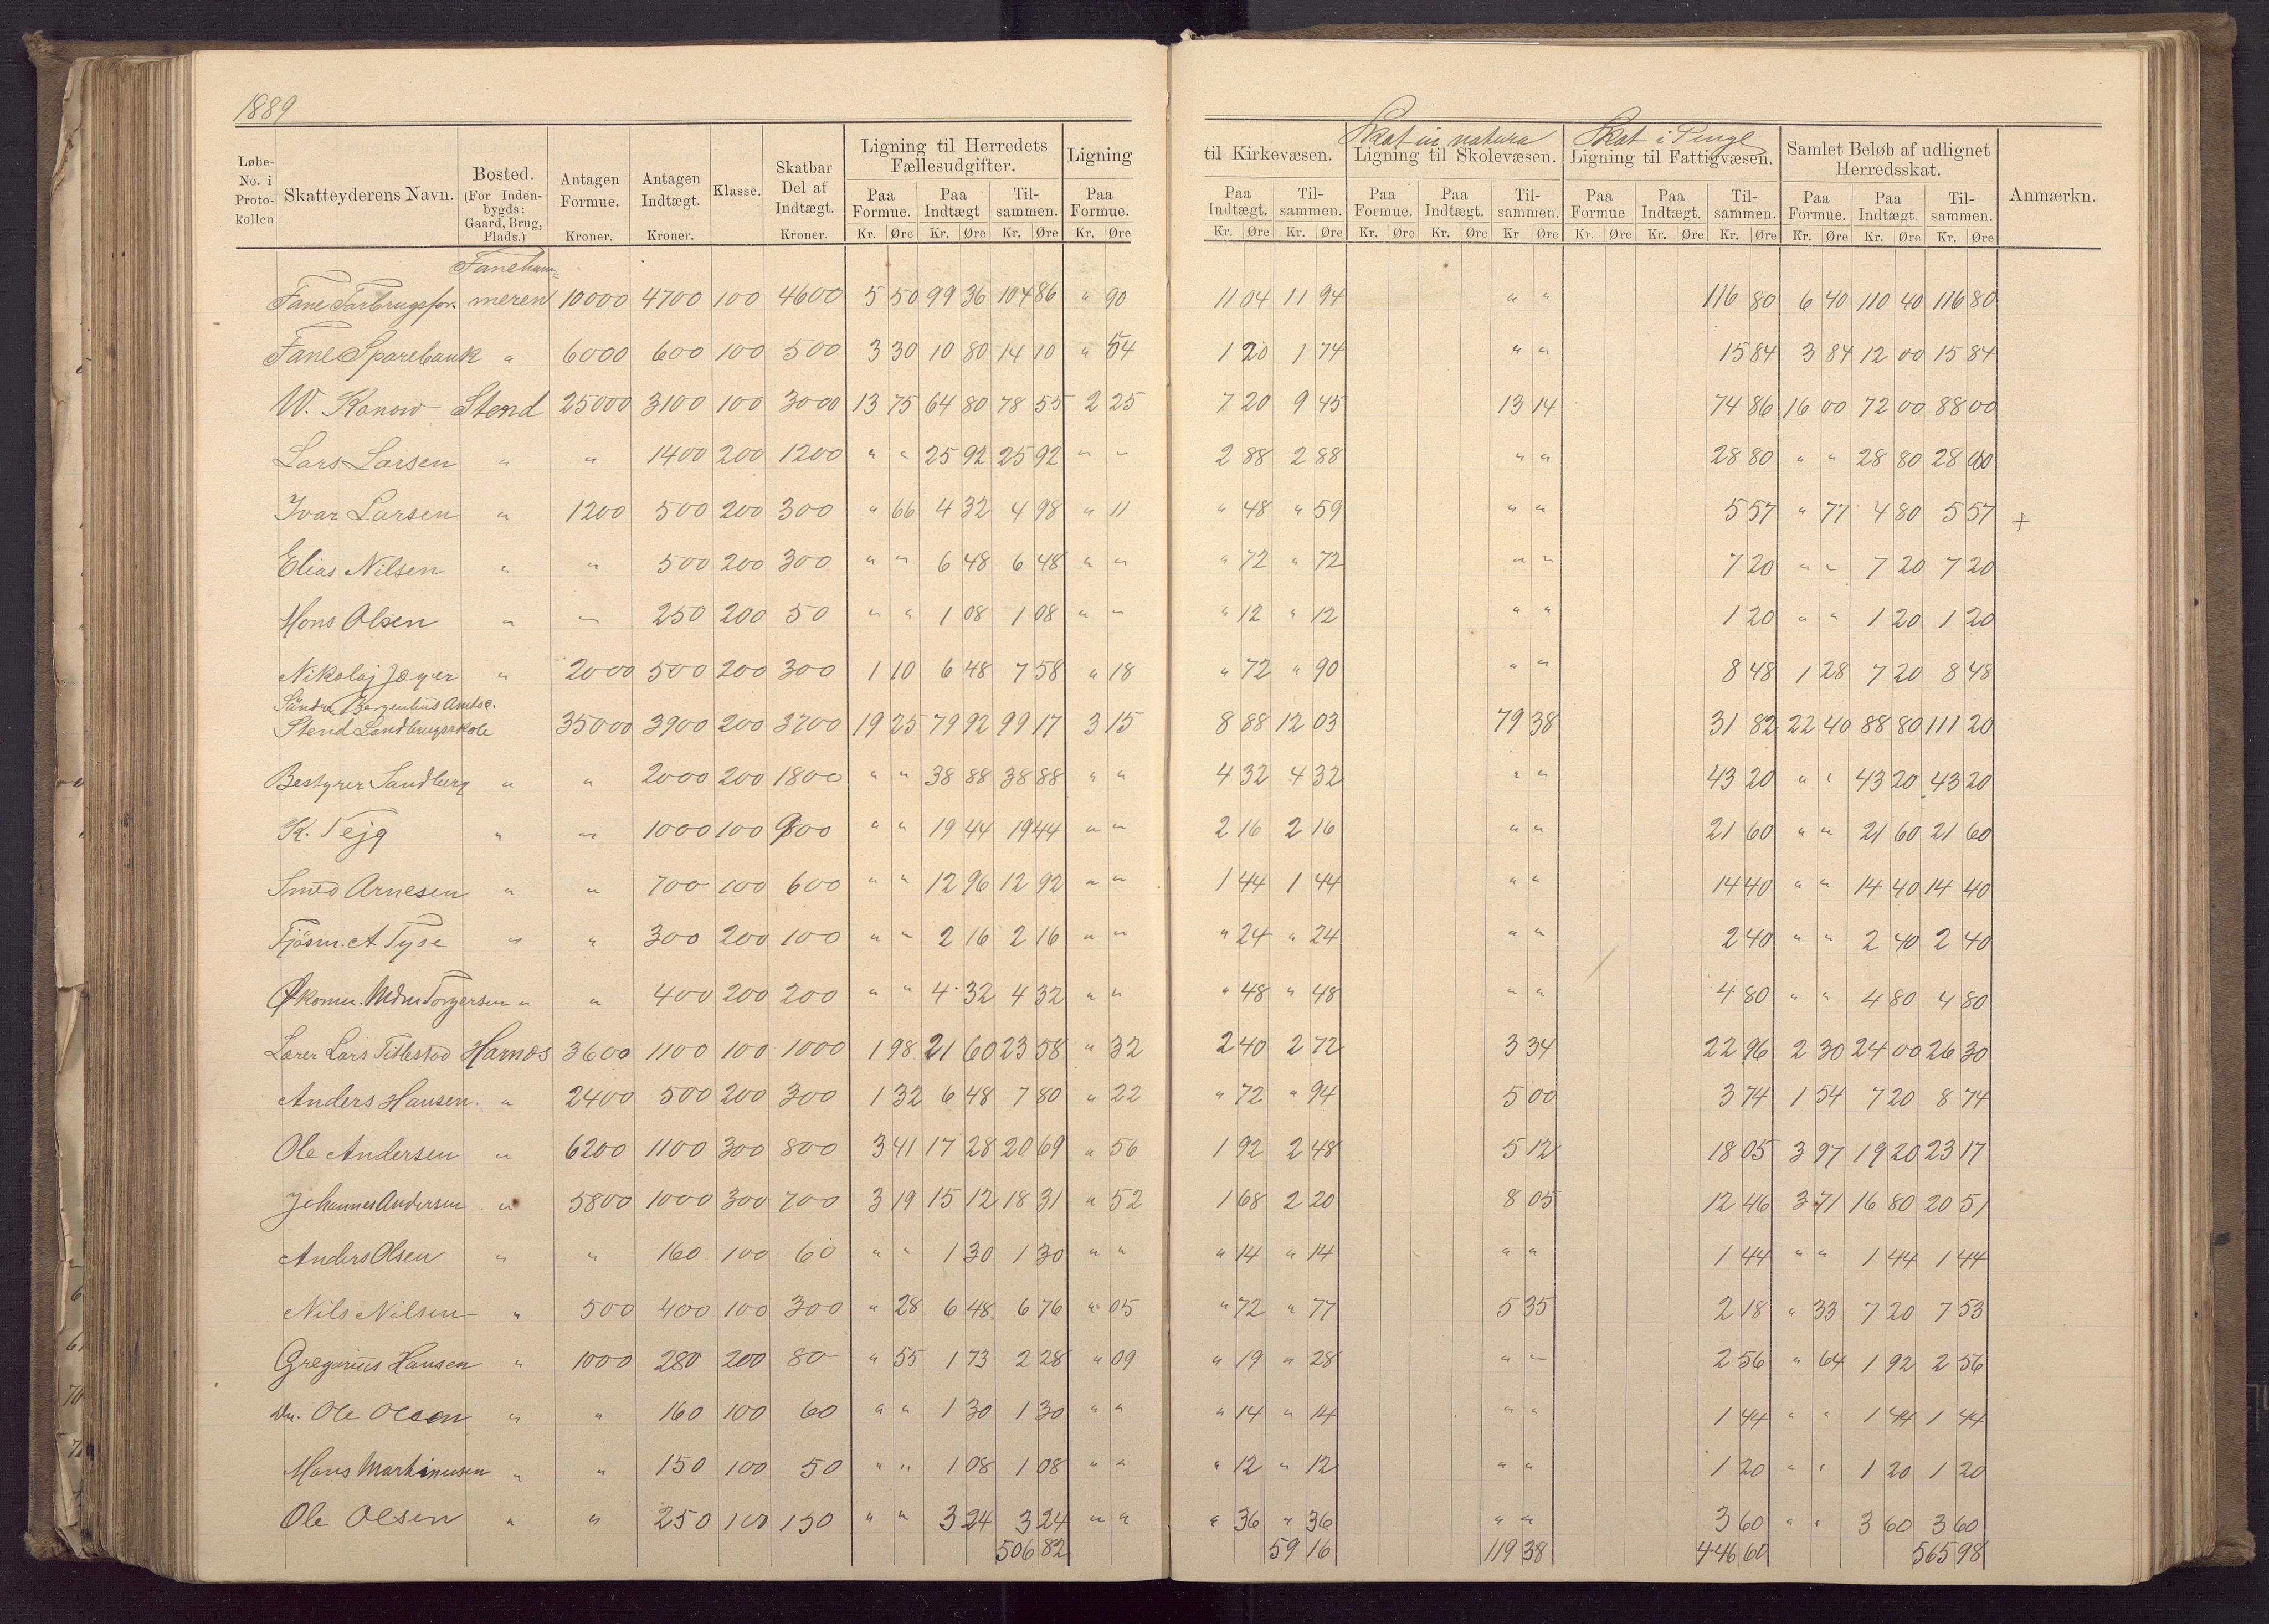 1889
Løbe-No. i Protokollen | Skatteyderens Navn. | Bosted. (For Indenbygds: Gaard, Brug, Plads.) | Antagen Formue. Kroner. | Antagen Indtægt. Kroner. | Klasse. | Skatbar Del af Indtægt. Kroner. | Ligning til Herredets Fællesudgifter. Paa Formue. Kr. Øre | Paa Indtægt Kr. Øre | Tilsammen. Kr. Øre | Ligning Paa Formue. Kr. Øre | til Kirkevæsen. Paa Indtægt. Kr. Øre | Tilsammen. Kr. Øre | Skat in natura Ligning til Skolevæsen. Paa Formue. Kr. Øre | Paa Indtægt. Kr. Øre | Tilsammen. Kr Øre | Skat i Penge Ligning til Fattigvæsen. Paa Formue Kr. Øre | Paa Indtægt. Kr. Øre | Tilsammen. Kr. Øre | Samlet Beløb af udlignet Herredsskat. Paa Formue. Kr. Øre | Paa Indtægt Kr. Øre | Tilsammen. Kr. Øre | Anmærkn.
Faneham=
Fane Forbrugsfor. meren 10000 4700 100 4600 5 50 99 36 104 86 " 90 11 04 11 94 " " 116 80 6 40 110 40 116 80
Fane Sparebank " 6000 600 100 500 3 30 10 80 14 10 " 54 1 20 1 74 " " 15 84 3 84 12 00 15 84
W. Konow Stend 25000 3100 100 3000 13 75 64 80 78 55 2 25 7 20 9 45 13 14 74 86 16 00 72 00 88 00
Lars Larsen " " 1400 200 1200 " " 25 92 25 92 " " 2 88 2 88 " " 28 80 " " 28 80 28 80
Ivar Larsen " 1200 500 200 300 " 66 4 32 4 98 " 11 " 48 " 59 " " 5 57 " 77 4 80 5 57 +
Elias Nilsen " " 500 200 300 " " 6 48 6 48 " " " 72 " 72 " " 7 20 " " 7 20 7 20
Mons Olsen " " 250 200 50 " " 1 08 1 08 " " " 12 " 12 " " 1 20 " " 1 20 1 20
Nikolaj Jæger " 2000 500 200 300 1 10 6 48 7 58 " 18 " 72 " 90 " " 8 48 1 28 7 20 8 48
Söndre Bergenhus Amts
Stend Landbrugsskole 35000 3900 200 3700 19 25 79 92 99 17 3 15 8 88 12 03 79 38 31 82 22 40 88 80 111 20
Bestyrer Sandberg " " 2000 200 1800 " " 38 88 38 88 " " 4 32 4 32 " " 43 20 " " 43 20 43 20
K. Tejg " " 1000 100 900 " " 19 44 19 44 " " 2 16 2 16 " " 21 60 " " 21 60 21 60
Smed Arnesen " " 700 100 600 " " 12 96 12 92 " " 1 44 1 44 " " 14 40 " " 14 40 14 40
Fjösm. A Tyse " " 300 200 100 " " 2 16 2 16 " " " 24 " 24 " " 2 40 " " 2 40 2 40
Økonm. Mdm Torgersen " " 400 200 200 " " 4 32 4 32 " " " 48 " 48 " " 4 80 " " 4 80 4 80
Lærer Lars Titlestad Hamos 3600 1100 100 1000 1 98 21 60 23 58 " 32 2 40 2 72 3 34 22 96 2 30 24 00 26 30
Anders Hansen " 2400 500 200 300 1 32 6 48 7 80 " 22 " 72 " 94 5 00 3 74 1 54 7 20 8 74
Ole Andersen " 6200 1100 300 800 3 41 17 28 20 69 " 56 1 92 2 48 5 12 18 05 3 97 19 20 23 17
Johannes Andersen " 5800 1000 300 700 3 19 15 12 18 31 " 52 1 68 2 20 8 05 12 46 3 71 16 80 20 51
Anders Olsen " " 160 100 60 " " 1 30 1 30 " " " 14 " 14 " " 1 44 " " 1 44 1 44
Nils Nilsen " 500 400 100 300 " 28 6 48 6 76 " 05 " 72 " 77 5 35 2 18 " 33 7 20 7 53
Gregorius Hansen " 1000 280 200 80 " 55 1 73 2 28 " 09 " 19 " 28 " " 2 56 " 64 1 92 2 56
Dr. Ole Olsen " " 160 100 60 " " 1 30 1 30 " " " 14 " 14 " " 1 44 " " 1 44 1 44
Mons Markinusen " " 150 100 50 " " 1 08 1 08 " " " 12 " 12 " " 1 20 " " 1 20 1 20
Ole Olsen " " 250 100 150 " " 3 24 3 24 " " " 36 " 36 " " 3 60 " " 3 60 3 60
506 82 59 16 119 38 446 60 565 98